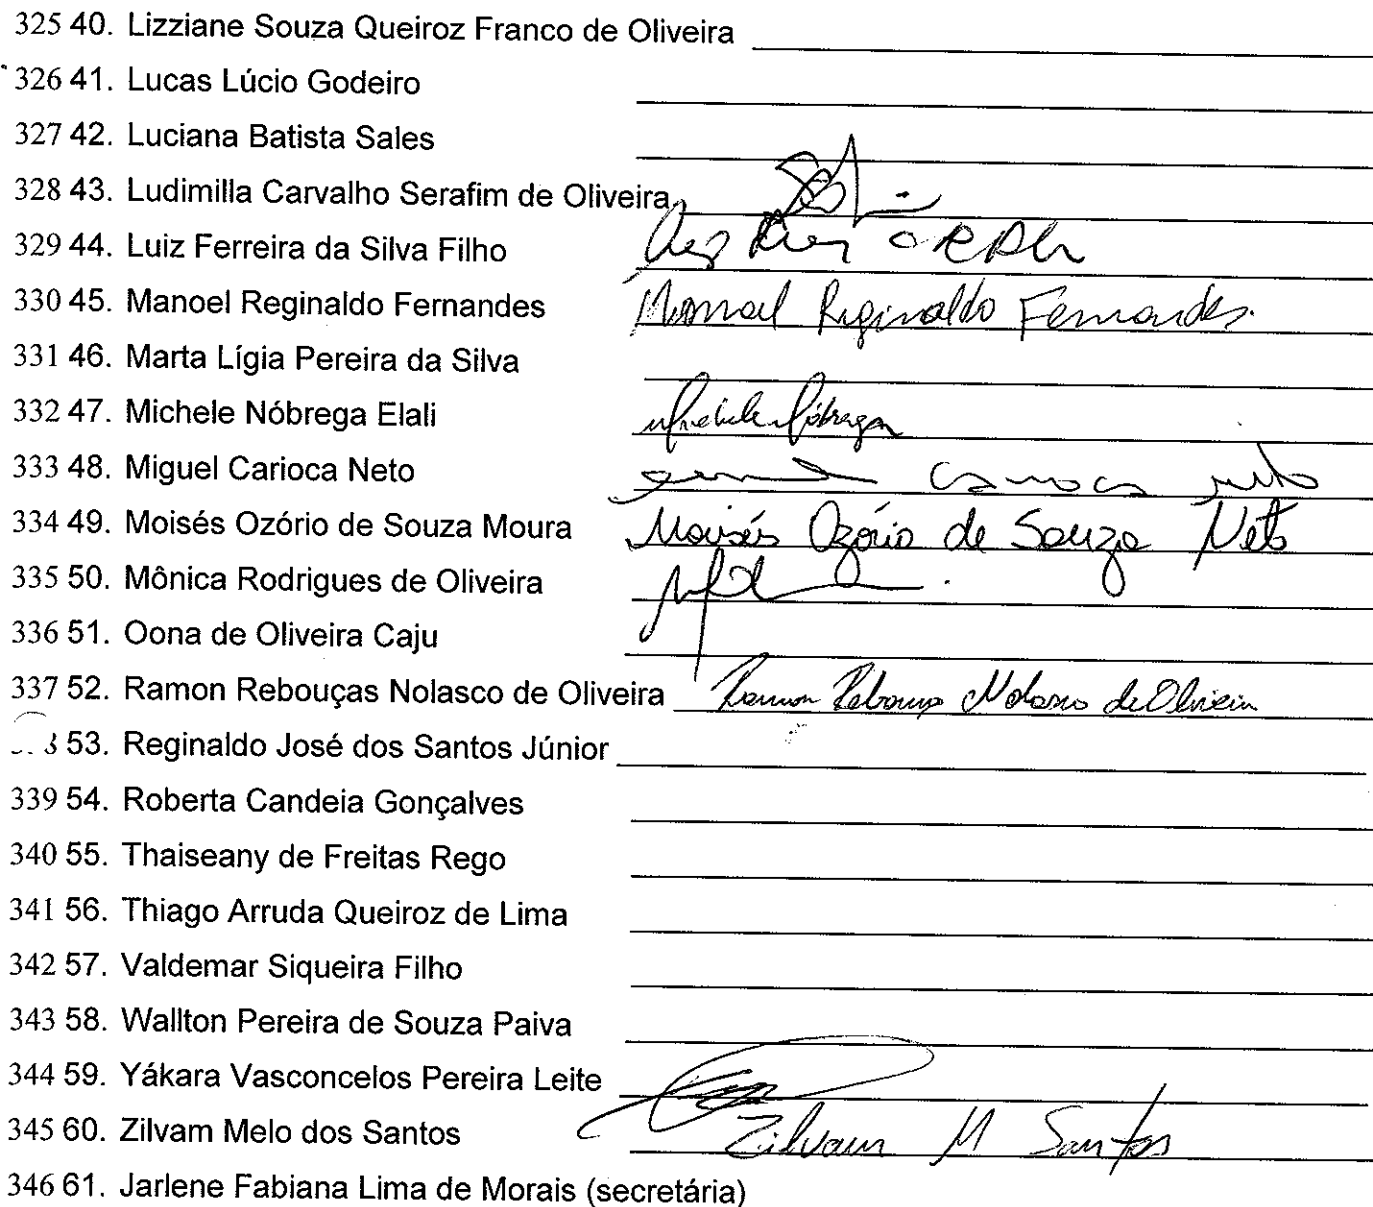 325 40. Lizziane Souza Queiroz Franco de Oliveira
326 41. Lucas Lúcio Godeiro
327 42. Luciana Batista Sales
328 43. Ludimilla Carvalho Serafim de Oliveira
329 44. Luiz Ferreira da Silva Filho
330 45. Manoel Reginaldo Fernandes Manoel Reginaldo Fernandes.
331 46. Marta Lígia Pereira da Silva
332 47. Michele Nóbrega Elali Michele Nóbrega
333 48. Miguel Carioca Neto Carioca Neto
334 49. Moisés Ozório de Souza Moura Moisés Ozório de Souza Neto
335 50. Mônica Rodrigues de Oliveira
336 51. Oona de Oliveira Caju
337 52. Ramon Rebouças Nolasco de Oliveira Ramon Rebouças Nolasco de Oliveira
53. Reginaldo José dos Santos Júnior
339 54. Roberta Candeia Gonçalves
340 55. Thaiseany de Freitas Rego
341 56. Thiago Arruda Queiroz de Lima
342 57. Valdemar Siqueira Filho
343 58. Wallton Pereira de Souza Paiva
344 59. Yákara Vasconcelos Pereira Leite
345 60. Zilvam Melo dos Santos Zilvam M Santos
346 61. Jarlene Fabiana Lima de Morais (secretária)